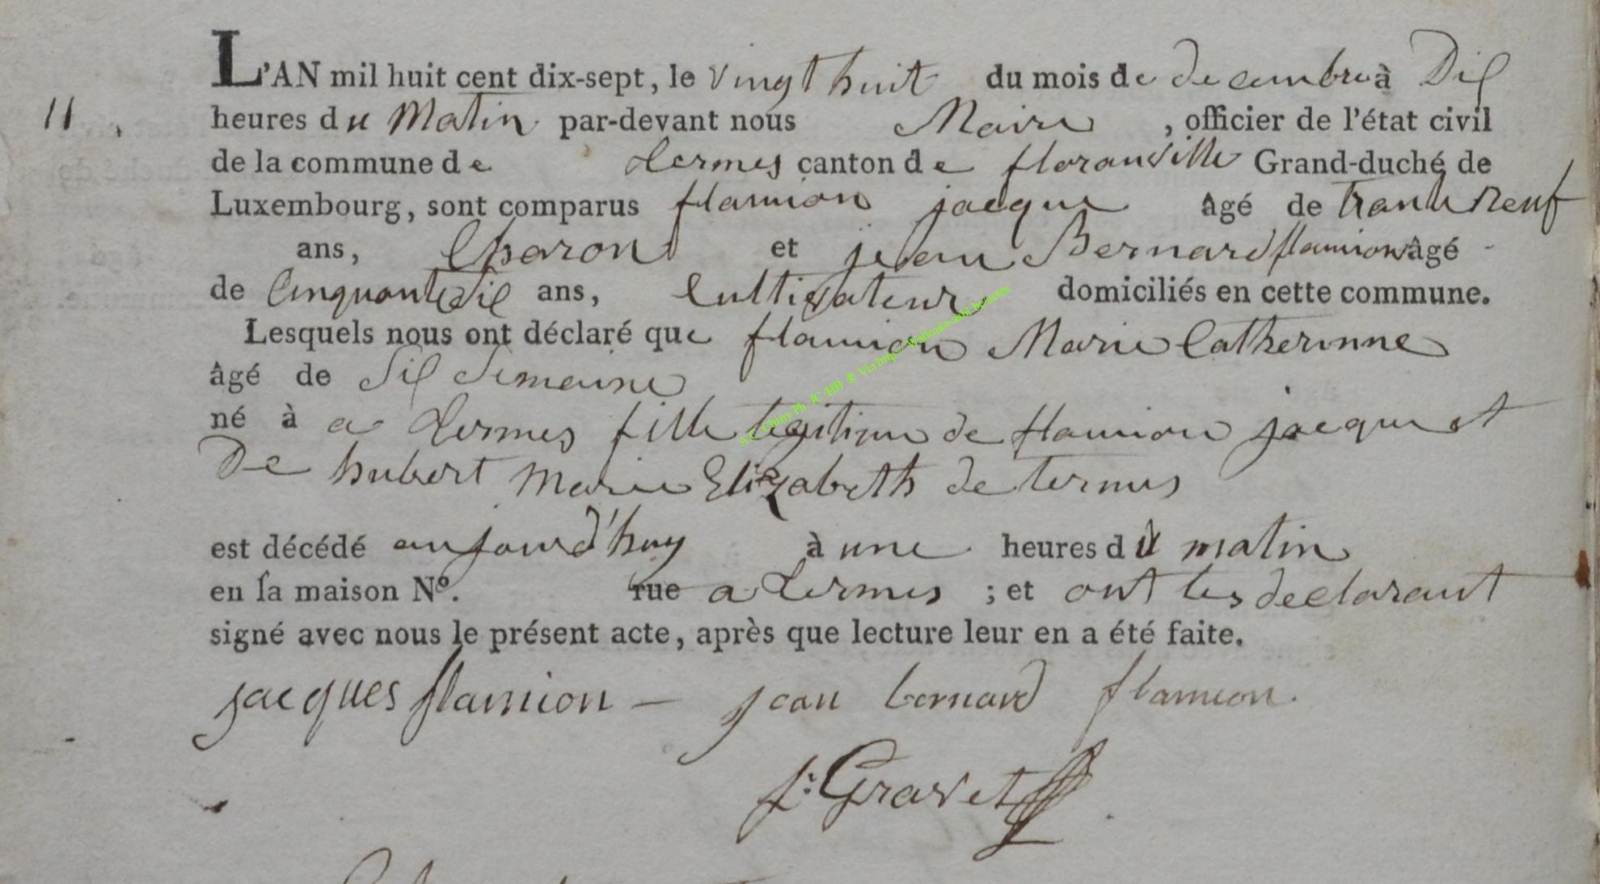 L'AN mil huit cent dix-sept, le vingt huit du mois de decembre à Dix
11 heures du Matin par-devant nous Maire, officier de l'état civil
de la commune de termes canton de floranville Grand-duché de
Luxembourg, sont comparus flamion jacque âgé de trante neuf
ans, Charon et jean Bernard flamion âgé
de Cinquante six ans, Cultivateur, domiciliés en cette commune.
Lesquels nous ont déclaré que flamion Marie Catherinne
âgé de Six Semaine
né à a termes fille legitime de flamion jacque et
De hubert marie Elizabeth de termes
est décédé aujourd'huy à une heures du matin
en sa maison Nº. rue a termes ; et ont les declarant
signé avec nous le présent acte, après que lecture leur en a été faite.
jacques flamion — jean bernard flamion.
f: Gravet